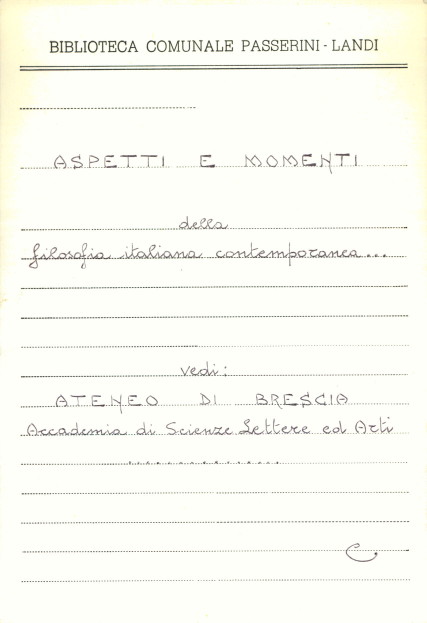 BIBLIOTECA COMUNALE PASSERINI - LANDI
ASPETTI E MOMENTI
della
filosofia italiana contemporanea...
vedi:
ATENEO DI BRESCIA
Accademia di Scienze Lettere ed Arti
..............